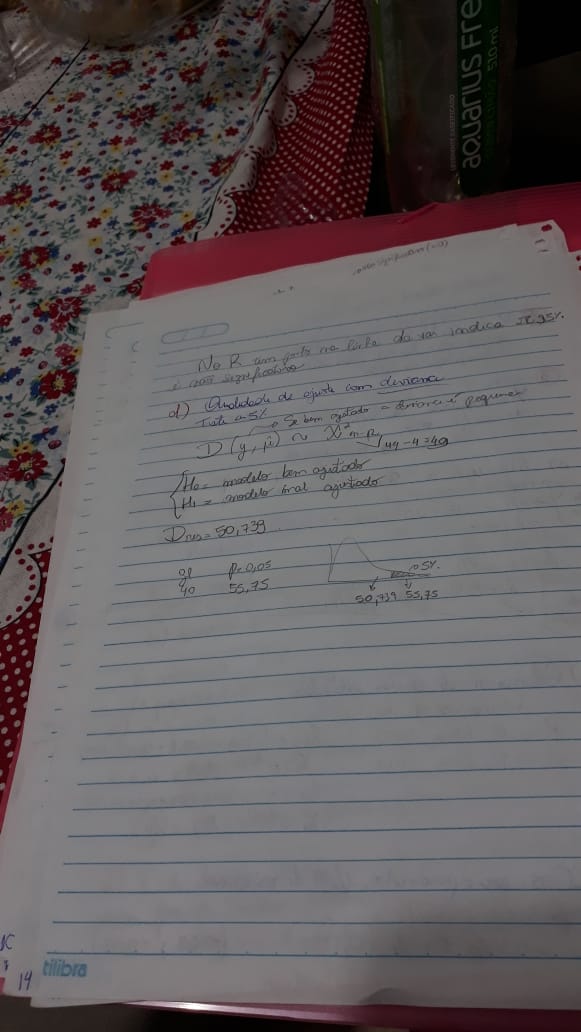 aquarius Fre
510ml
No R um ponto na linha da var indica
é não significativo
d) Qualidade de ajuste com deviance
Teste a 5%
Se bem ajustado = deviance é pequena
D (y, μ̂) ~ X² n-p, 44-4=40
H₀ = modelo bem ajustado
H₁ = modelo mal ajustado
Dres = 50,739
gl p=0,05
40 55,75
5%
50,739 55,75
14
tilibra